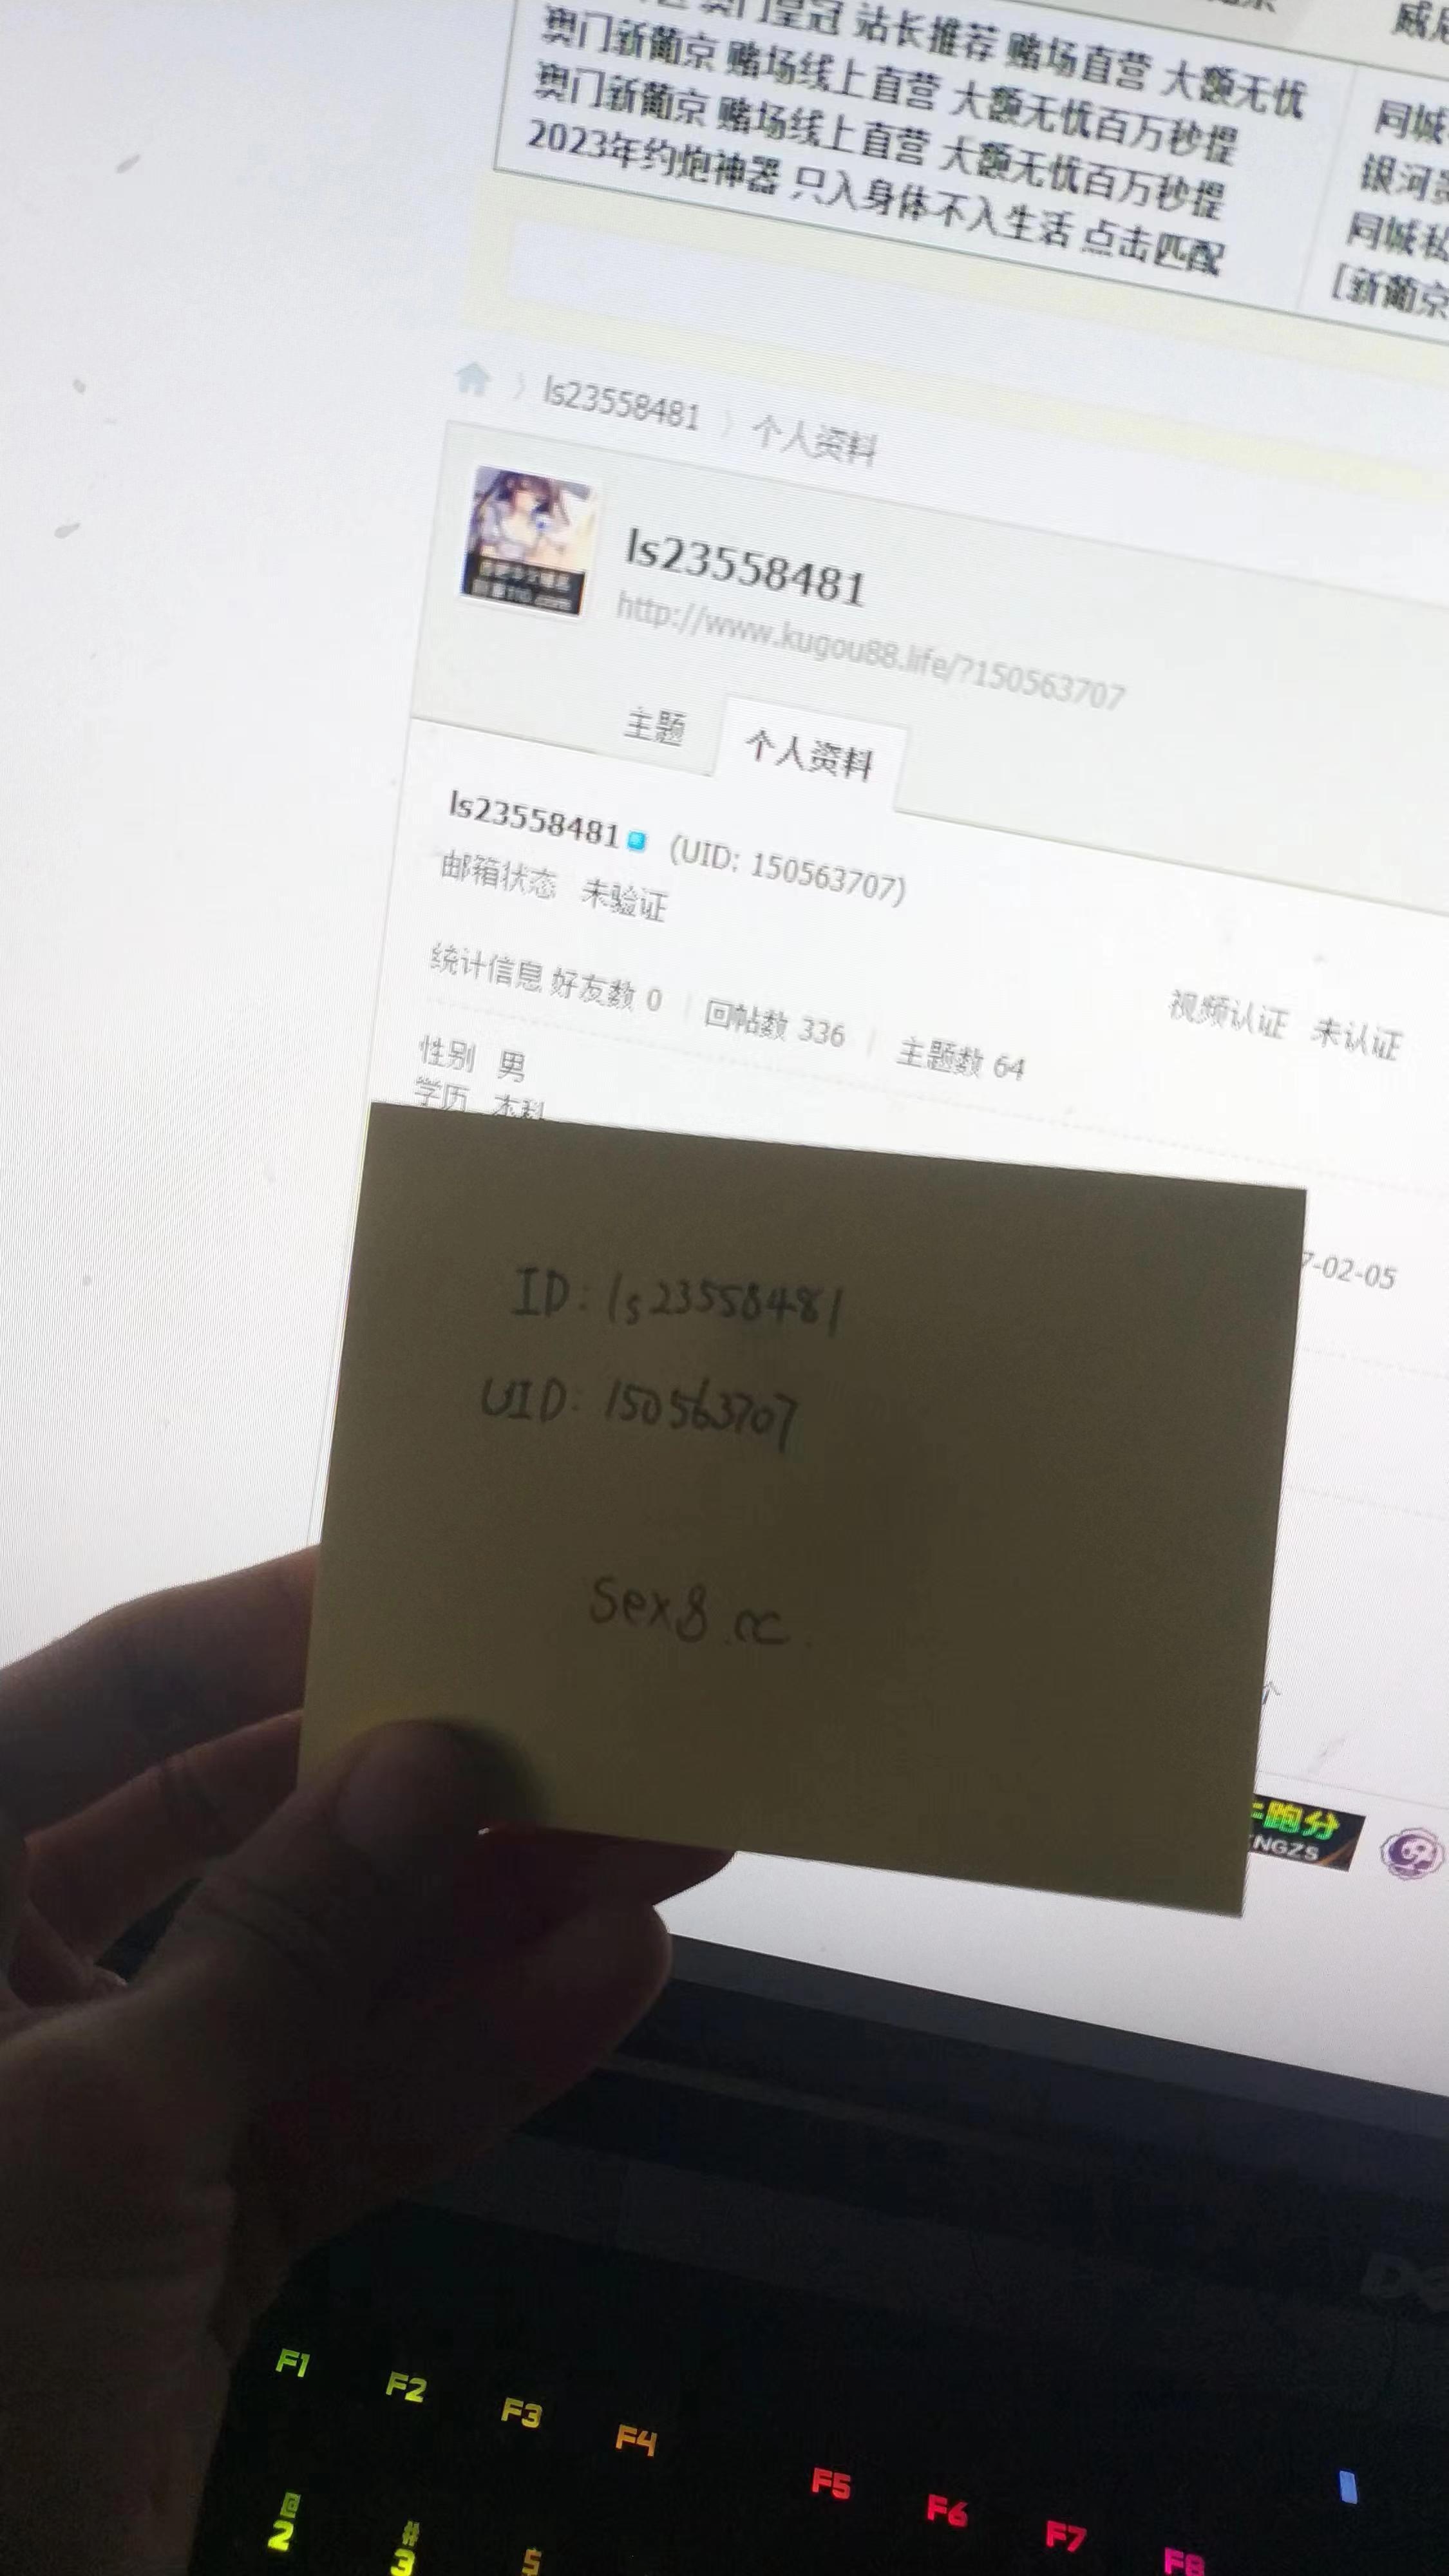 皇冠 站长推荐 赌场直营 大额无忧
澳门新葡京 赌场线上直营 大额无忧百万秒提
澳门新葡京 赌场线上直营 大额无忧百万秒提
2023年约炮神器 只入身体不入生活 点击匹配
同城
银河
同城私
[新葡京
ls23558481 〉 个人资料
ls23558481
http://www.kugou88.life/?150563707
主题 个人资料
ls23558481 (UID: 150563707)
邮箱状态 未验证
视频认证 未认证
统计信息 好友数 0 | 回帖数 336 | 主题数 64
性别 男
学历 本科
7-02-05
ID: ls23558481
UID: 150563707
Sex8.cc.
个
跑分
NGZS
F1 F2 F3 F4 F5 F6 F7 F8
@ # $
2 3